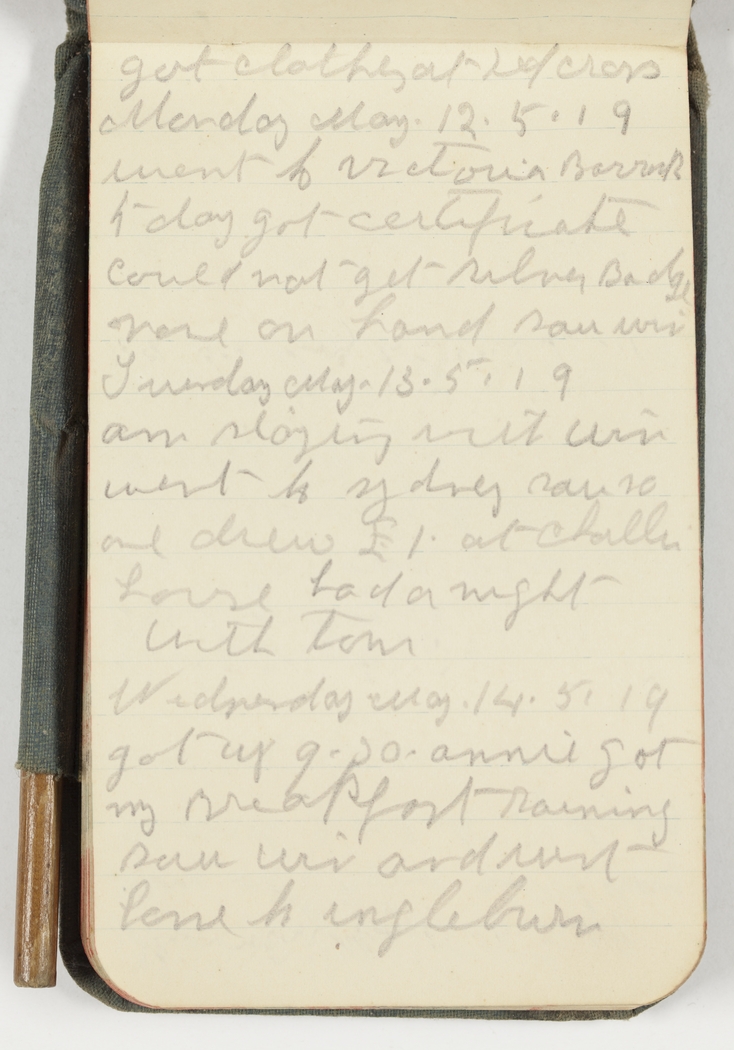 got clothes at Red cross
Monday May. 12. 5. 19
went to victoria Barrack
to day got certificate
could not get silver Badge
none on hand saw win
Tuesday May. 13. 5. 19
am staying with win
went to sydney saw so
one drew £1. at challis
house had a night
with Tom
Wednesday May. 14. 5. 19
got up 9.30. annie got
my Breakfast raining
saw win and went
home to ingleburn